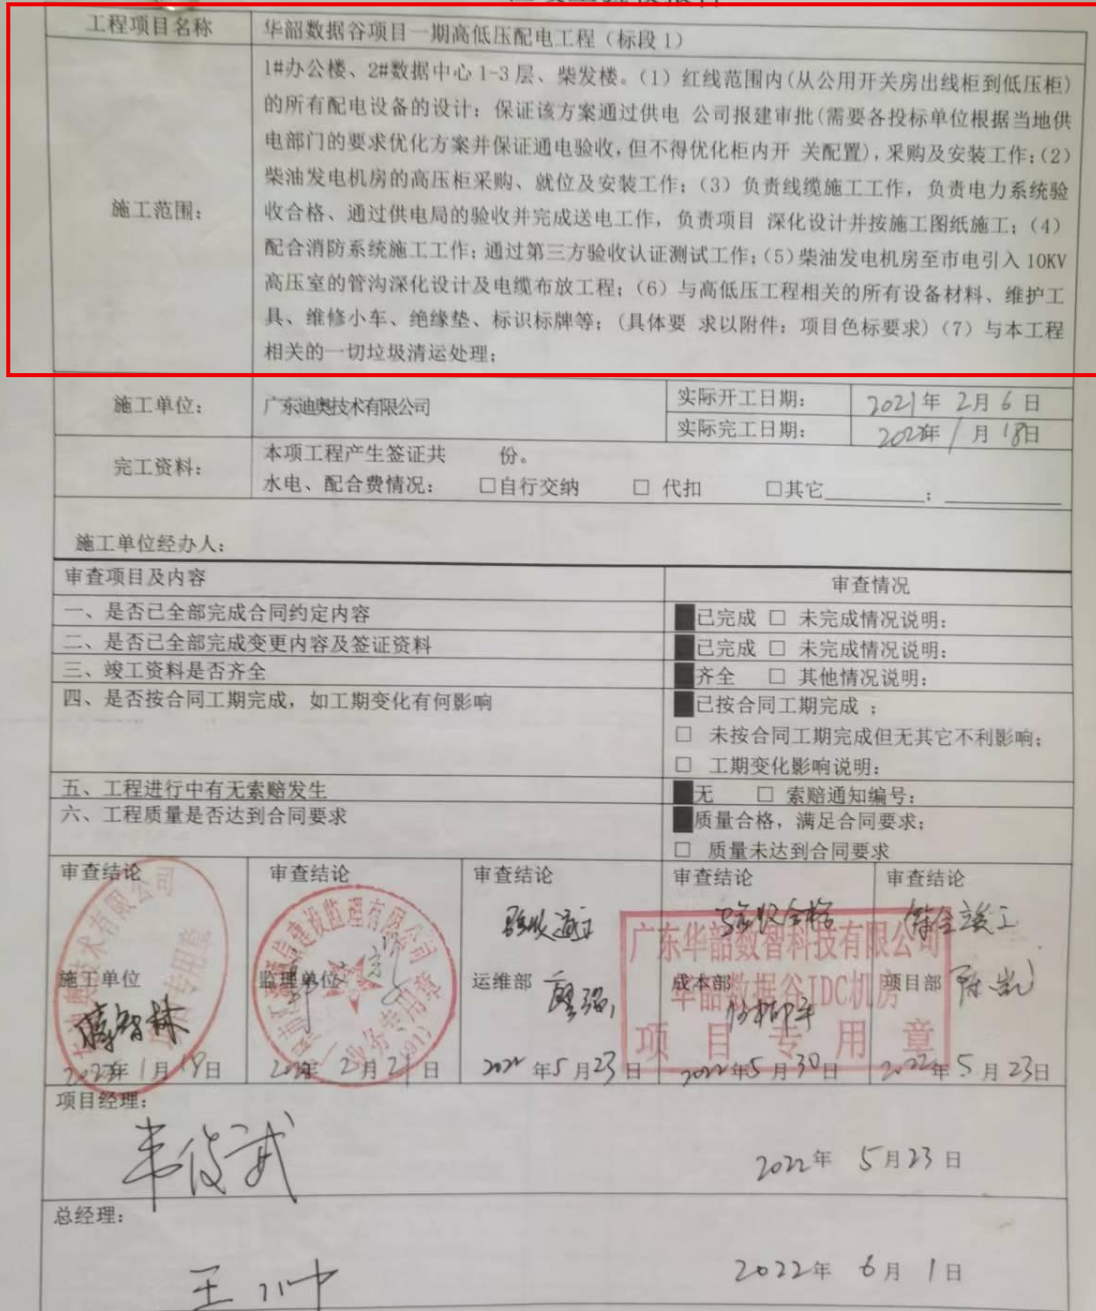 工程项目名称
华韶数据谷项目一期高低压配电工程（标段1）
施工范围：
1#办公楼、2#数据中心1-3层、柴发楼。（1）红线范围内(从公用开关房出线柜到低压柜)
的所有配电设备的设计；保证该方案通过供电 公司报建审批(需要各投标单位根据当地供
电部门的要求优化方案并保证通电验收,但不得优化柜内开 关配置),采购及安装工作;(2)
柴油发电机房的高压柜采购、就位及安装工作；（3）负责线缆施工工作，负责电力系统验
收合格、通过供电局的验收并完成送电工作，负责项目 深化设计并按施工图纸施工;（4）
配合消防系统施工工作;通过第三方验收认证测试工作;(5)柴油发电机房至市电引入10KV
高压室的管沟深化设计及电缆布放工程；（6）与高低压工程相关的所有设备材料、维护工
具、维修小车、绝缘垫、标识标牌等；(具体要 求以附件：项目色标要求)（7）与本工程
相关的一切垃圾清运处理；
施工单位：
广东迪奥技术有限公司
实际开工日期：
2021年 2月 6日
实际完工日期：
2022年 1月 18日
完工资料：
本项工程产生签证共 份。
水电、配合费情况： □自行交纳 □ 代扣 □其它________；________
施工单位经办人：
审查项目及内容
审查情况
一、是否已全部完成合同约定内容
■已完成 □ 未完成情况说明：
二、是否已全部完成变更内容及签证资料
■已完成 □ 未完成情况说明：
三、竣工资料是否齐全
■齐全 □ 其他情况说明：
四、是否按合同工期完成，如工期变化有何影响
■已按合同工期完成 ；
□ 未按合同工期完成但无其它不利影响；
□ 工期变化影响说明：
五、工程进行中有无索赔发生
■无 □ 索赔通知编号：
六、工程质量是否达到合同要求
■质量合格，满足合同要求；
□ 质量未达到合同要求
审查结论
施工单位
2022年 1月 18日
审查结论
监理单位
2022年 2月 21日
审查结论
验收通过
运维部
2022年5月23日
审查结论
验收合格
成本部
2022年5月30日
审查结论
符合竣工
项目部 陈岚
2022年 5月 23日
广东华韶数智科技有限公司
华韶数据谷IDC机房
项目专用章
项目经理：
韦俊武
2022年 5月23日
总经理：
王川中
2022年 6月 1日